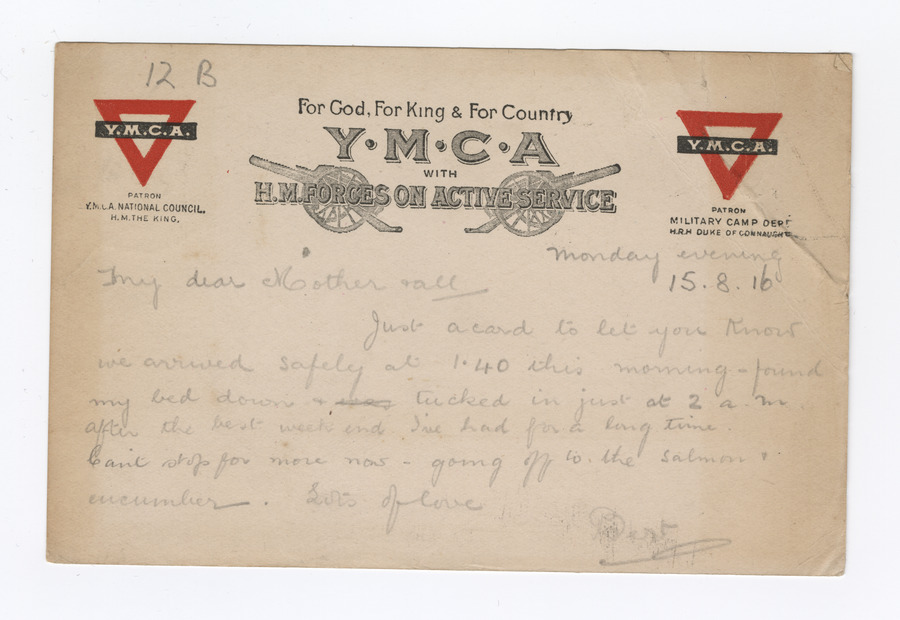 12 B
For God, For King & For Country
Y·M·C·A
WITH
H.M. FORCES ON ACTIVE SERVICE
Y.M.C.A.
PATRON
Y.M.C.A. NATIONAL COUNCIL.
H.M. THE KING.
Y.M.C.A.
PATRON
MILITARY CAMP DEPT
H.R.H DUKE OF CONNAUGHT
Monday evening
15.8.16
My dear Mother & all
Just a card to let you know
we arrived safely at 1.40 this morning - found
my bed down & was tucked in just at 2 a.m.
after the best week end I've had for a long time.
Can't stop for more now - going off to the salmon &
cucumber. Lots of love